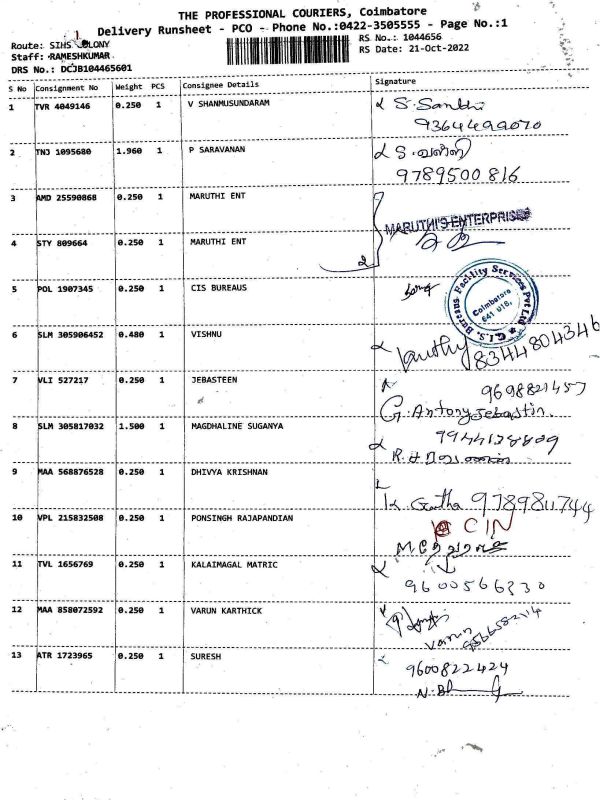 THE PROFESSIONAL COURIERS, Coimbatore
Delivery Runsheet - PCO - Phone No.:0422-3505555 - Page No.:1
Route: SIHS COLONY
RS No.: 1044656
Staff: RAMESHKUMAR
RS Date: 21-Oct-2022
DRS No.: DCJB104465601
S No Consignment No Weight PCS Consignee Details Signature
1 TVR 4049146 0.250 1 V SHANMUSUNDARAM S. Santhi
9364499070
2 TNJ 1095680 1.960 1 P SARAVANAN
9789500816
3 AMD 25590868 0.250 1 MARUTHI ENT
MARUTHI'S ENTERPRISES
4 STY 809664 0.250 1 MARUTHI ENT
5 POL 1907345 0.250 1 CIS BUREAUS
C.I.S. Bureaus Facility Services Pvt Ltd
Coimbatore
641 018.
6 SLM 305906452 0.480 1 VISHNU
8344804346
7 VLI 527217 0.250 1 JEBASTEEN 9698821457
G. Antony Jebastin.
8 SLM 305817032 1.500 1 MAGDHALINE SUGANYA
9 MAA 568876528 0.250 1 DHIVYA KRISHNAN
K. Geetha 9789811744
10 VPL 215832508 0.250 1 PONSINGH RAJAPANDIAN CIN
11 TVL 1656769 0.250 1 KALAIMAGAL MATRIC
9600566330
12 MAA 858072592 0.250 1 VARUN KARTHICK
Varun
13 ATR 1723965 0.250 1 SURESH
9600822424